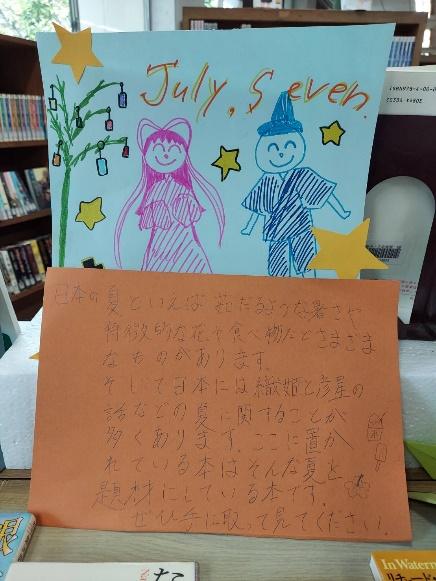 July. Seven.
日本の夏といえば茹だるような暑さや
特徴的な花や食べ物などさまざま
なものがあります。
そして日本には織姫と彦星の
話などの夏に関することが
多くあります。ここに置か
れている本はそんな夏を
題材にしている本です。
ぜひ手に取って見てください。
In Waterm